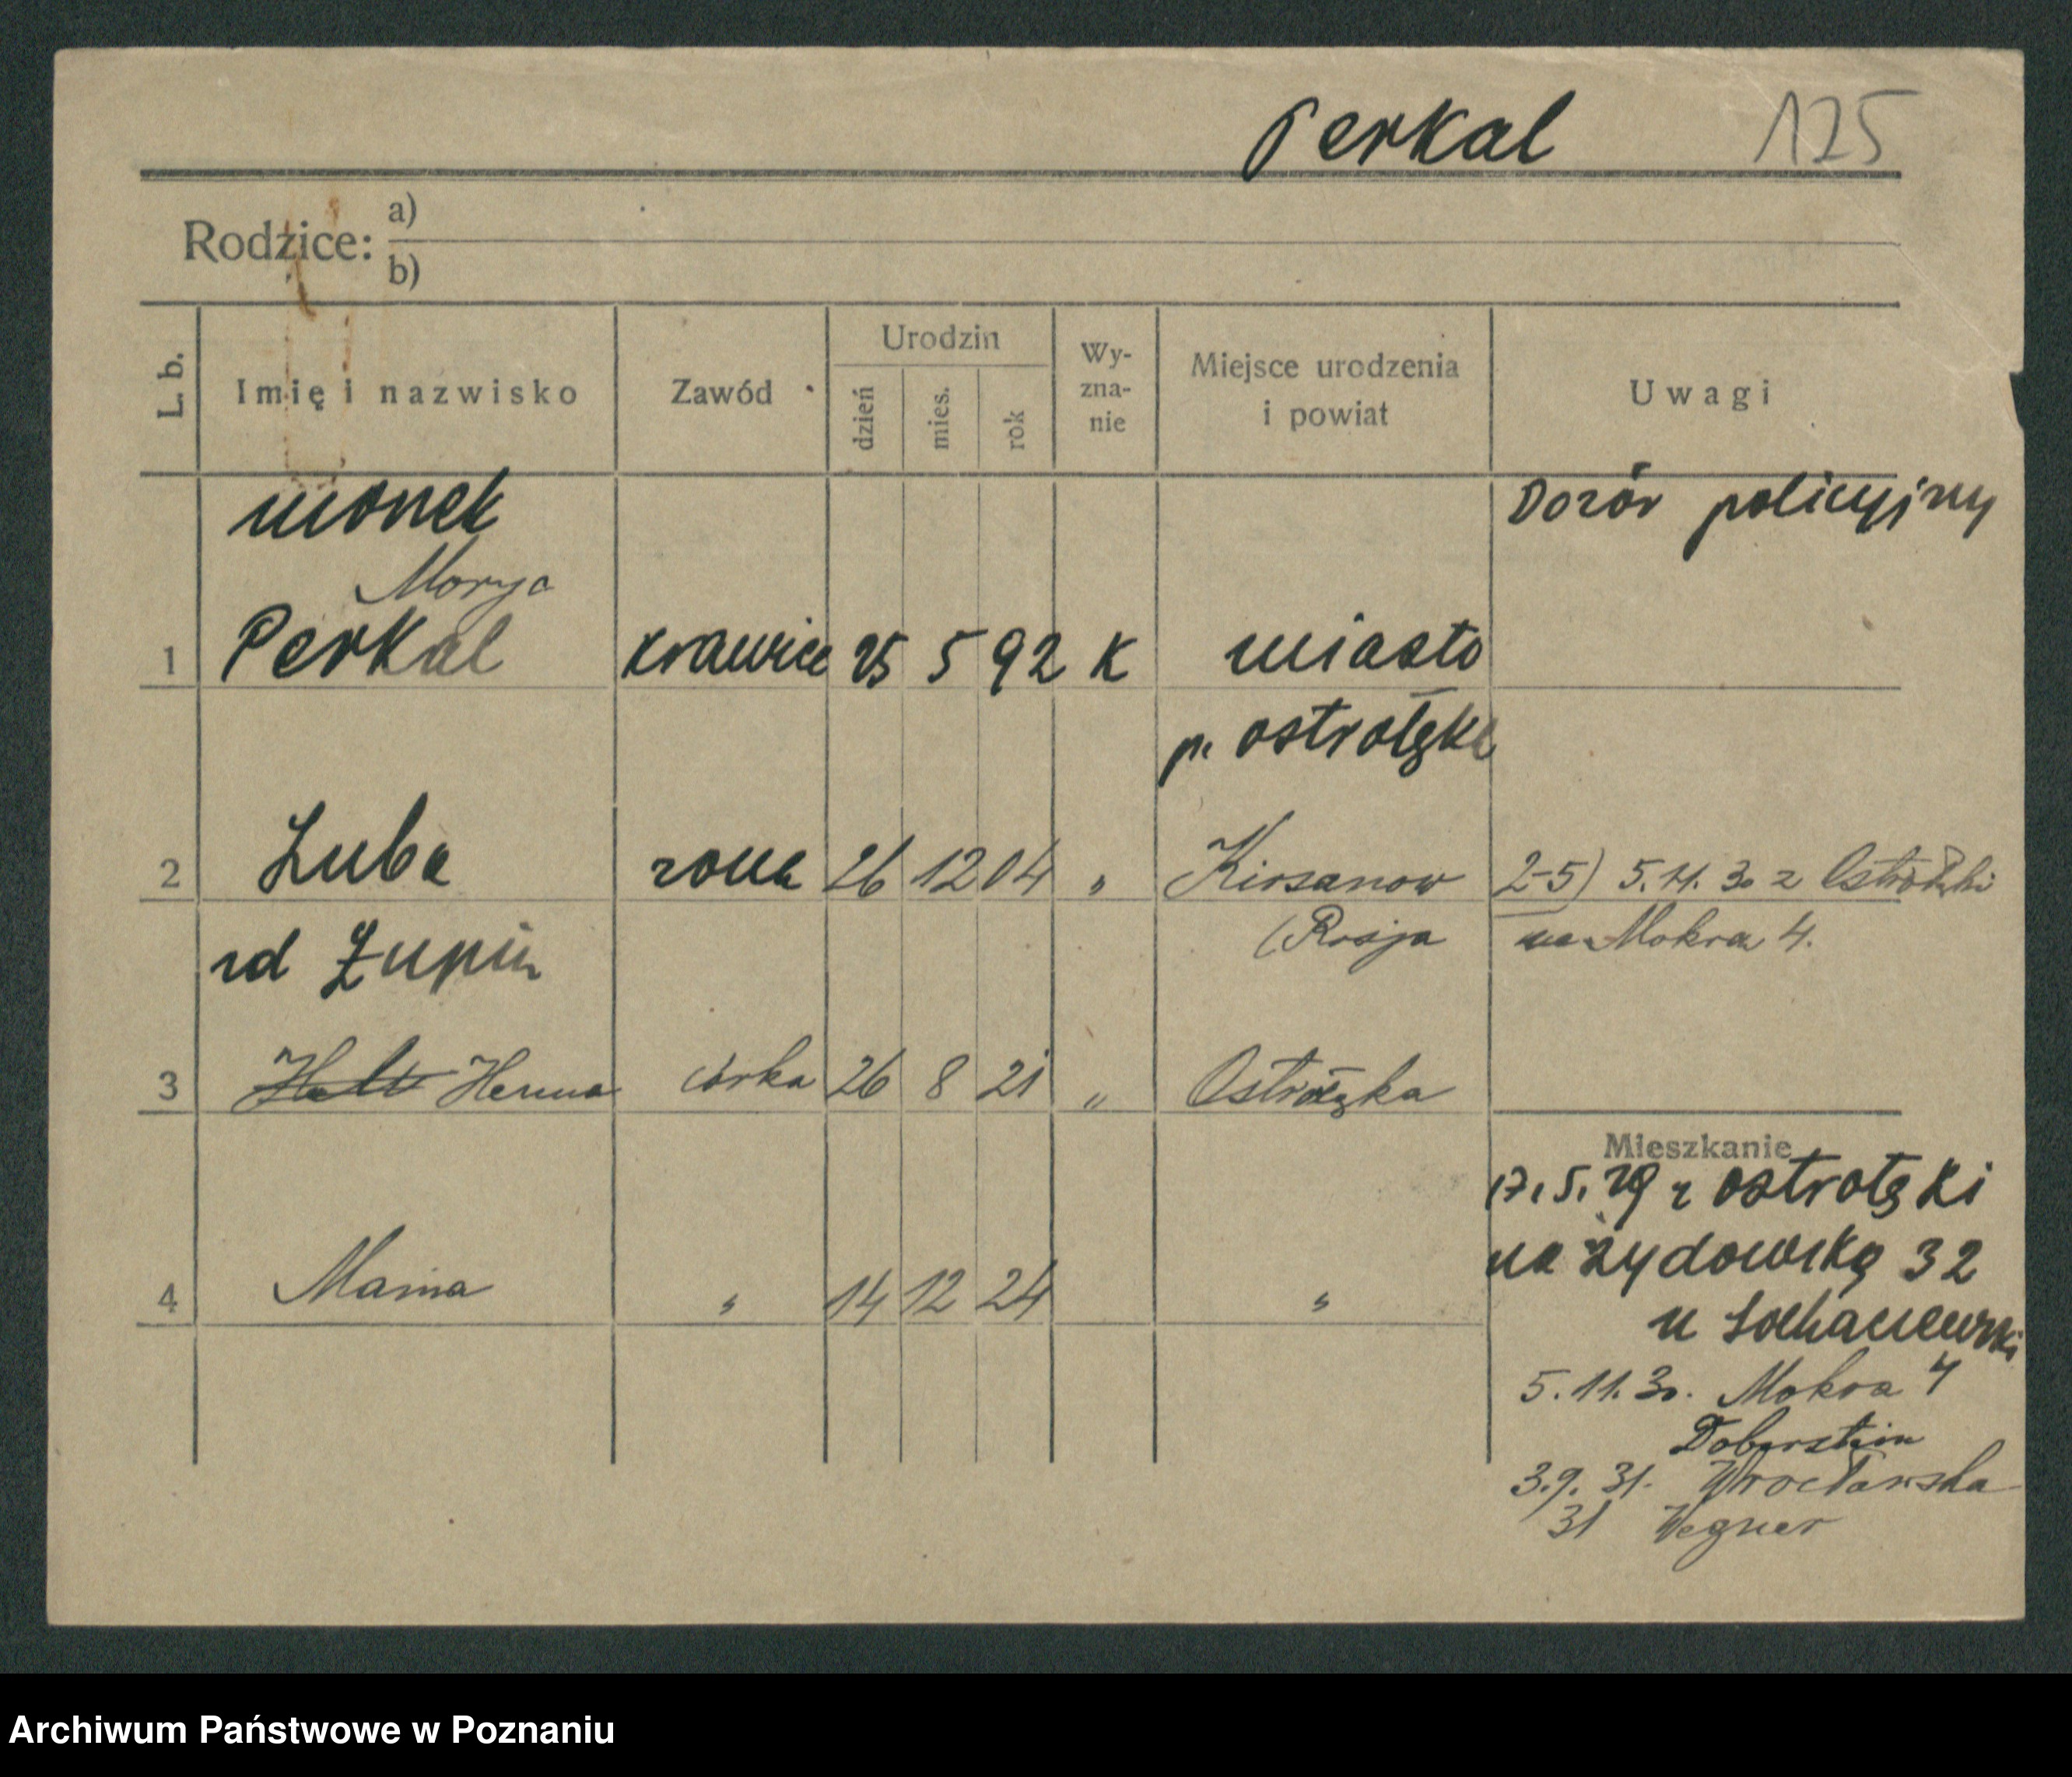 Perkal 125
Rodzice: a)
b)
L. b.
Imię i nazwisko
Zawód
Urodzin
dzień
mies.
rok
Wy-
zna-
nie
Miejsce urodzenia
i powiat
Uwagi
monek
Dozór policyjny
1 Perkal krawiec 25 5 92 K miasto
p. ostrołęka
2 Luba żona 26 12 04 " Kirsanow 2-5) 5.11.30 z Ostrołęki
(Rosja na Mokra 4.
zd
3 Henna córka 26 8 21 " Ostrołęka
Mieszkanie
17.5.29 z ostrołęki
na żydowską 32
u
4 Mania " 14 12 24 "
5.11.30. Mokra 4
Doberstein
3.9.31. Wrocławska
31 Wegner
Archiwum Państwowe w Poznaniu